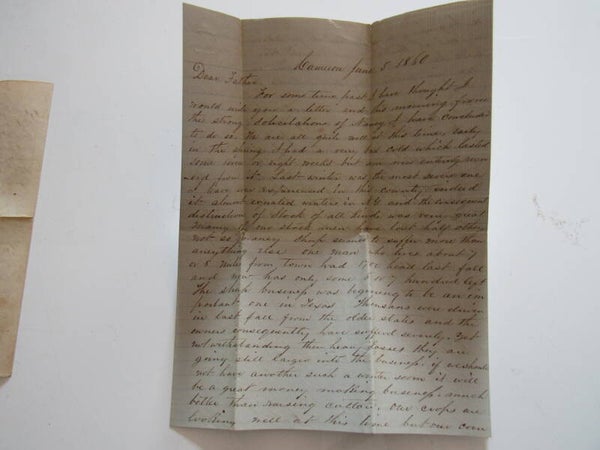 Cameron June 3 1860
Dear Father
For some time past I have thought I
would write you a letter and this morning from
the strong solicitations of Nancy I have concluded
to do so. We are all quite well at this time, early
in the spring I had a very bad cold which lasted
some seven or eight weeks but am now entirely recov
ered from it. Last winter was the most severe one
I have ever experienced in this country indeed
it almost equaled winters in and the consequent
distruction of Stock of all kinds was very great
many of our stock men have lost half others
not so many. Sheep seemed to suffer more than
anything else one man who lives about 7
or 8 miles from town had 1700 head last fall
and now has only some 6 or 7 hundred left
The sheep business was begining to be an im
portant one in Texas Thousans were driven
in last fall from the older states and the
owners consequently have suffered severely. But
notwithstanding their heavy losses they are
going still larger into the business if we should
not have another such a winter soon it will
be a great money making business much
better than raising cotton. Our crops are
looking well at this time but our corn